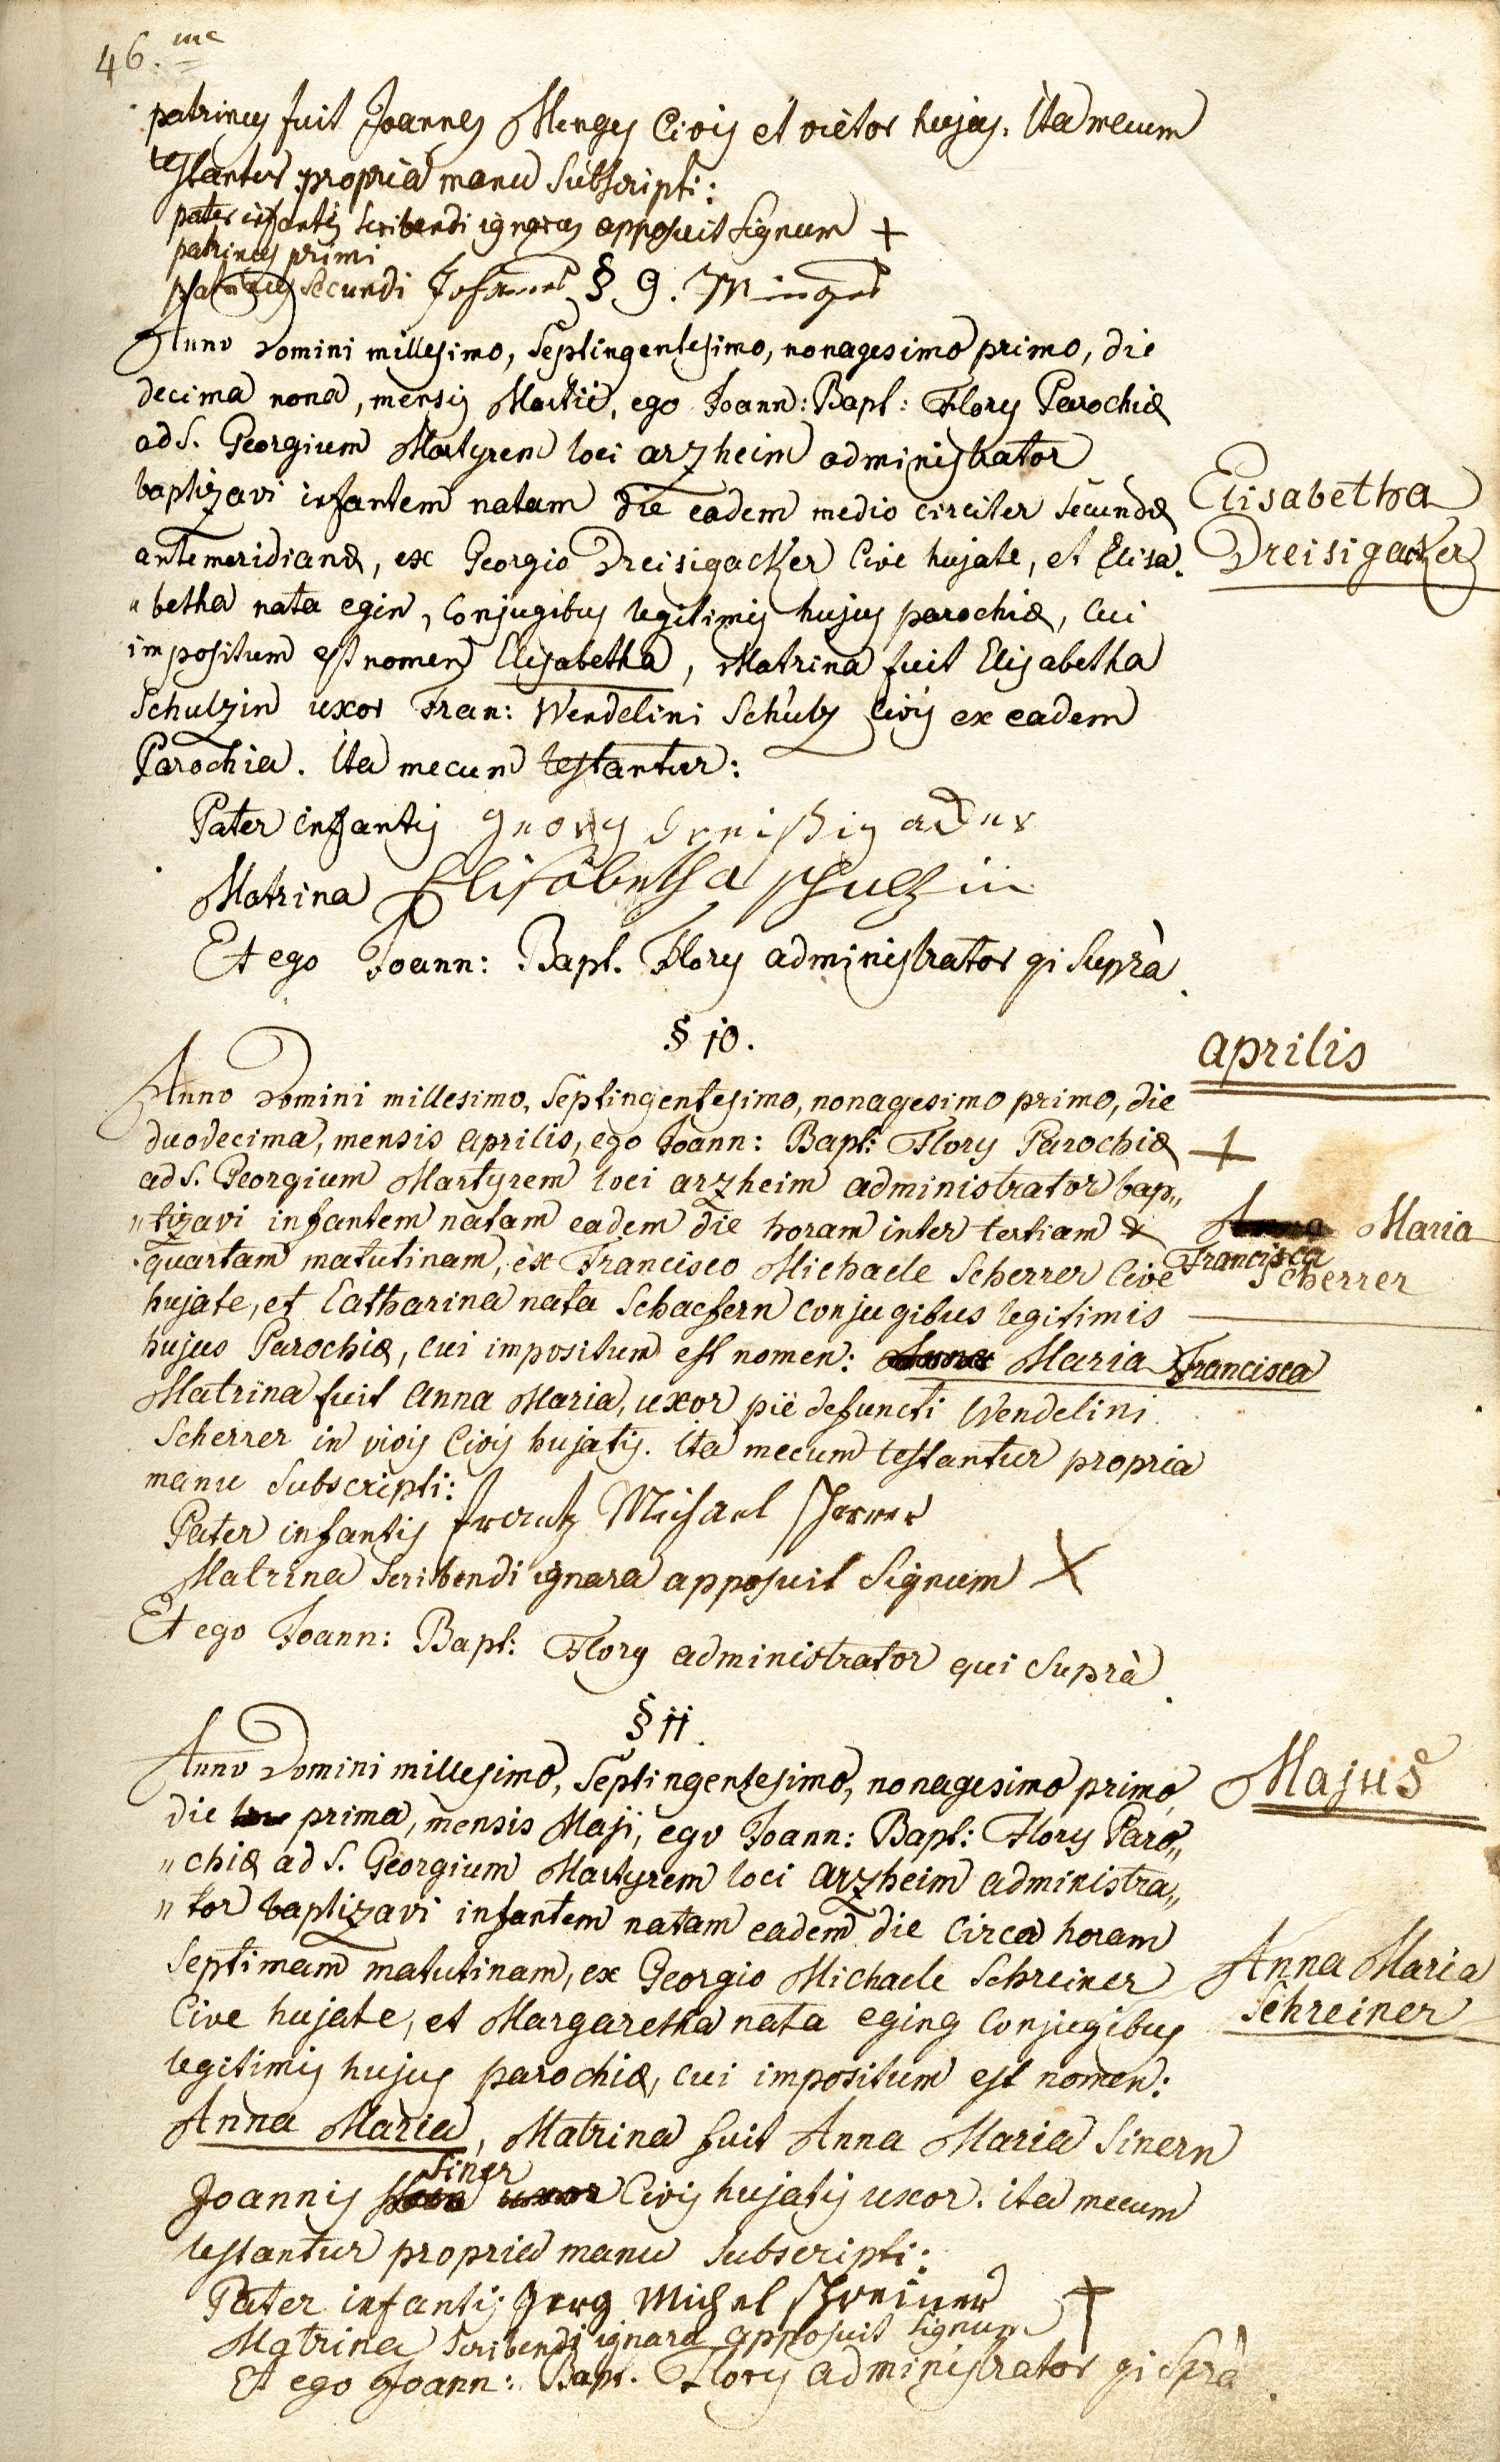 46. mc
patrinus fuit Joannes Menges Civis et viëtor hujas. Ita mecum
testantur propria manu Subscripti:
pater infantis scribendi ignarus apposuit Signum +
patrinus primi
patrinus secundi Johannes Minges
§ 9.
Anno Domini millesimo, Septingentesimo, nonagesimo primo, die
decima nona, mensis Martii, ego Joann: Bapt: Flory Parochiæ
ad S. Georgium Martyrem loci arzheim administrator
baptizavi infantem natam die eadem medio circiter secundæ
antemeridianæ, ex Georgio Dreisigacker Cive hujate, et Elisa„
„betha nata egin, Conjugibus legitimis hujus parochiæ, Cui
impositum est nomen Elisabetha, Matrina fuit Elisabetha
Schulzin uxor Fran: Wendelini Schulz Civis ex eadem
Parochia. Ita mecum testantur:
Elisabetha
Dreisigacker
Pater infantis georg dreißigacker
Matrina Elisabetha schulzin
Et ego Joann: Bapt. Flory administrator qi Suprà.
§ 10.
aprilis
Anno Domini millesimo, Septingentesimo, nonagesimo primo, die
duodecima, mensis aprilis, ego Joann: Bapt: Flory Parochiæ
ad S. Georgium Martyrem loci arzheim administrator bap„
„tizavi infantem natam eadem die horam inter tertiam &
quartam matutinam, ex Francisco Michaele Scherrer Cive
hujate, et Catharina nata Schaefern conjugibus legitimis
hujus Parochiæ, cui impositum est nomen: Anna Maria Francisca
Matrina fuit Anna Maria, uxor piè defuncti Wendelini
Scherrer in vivis Civis hujatis. Ita mecum testantur propria
manu Subscripti:
+
Anna Maria
Francisca
Scherrer
Pater infantis frantz Michael Scherrer
Matrina scribendi ignara apposuit Signum X
Et ego Joann: Bapt: Flory administrator qui Suprà.
§ 11.
Majus
Anno Domini millesimo, Septingentesimo, nonagesimo primo,
die prima, mensis Maji, ego Joann: Bapt: Flory Paro„
„chiæ ad S. Georgium Martyrem loci Arzheim administra„
„tor baptizavi infantem natam eadem die Circa horam
Septimam matutinam, ex Georgio Michaele Schreiner
Cive hujate, et Margaretha nata eging Conjugibus
legitimis hujus parochiæ, cui impositum est nomen:
Anna Maria, Matrina fuit Anna Maria Sinern
Siner
Joannis uxor Civis hujatis uxor. ita mecum
testantur propria manu Subscripti:
Anna Maria
Schreiner
Pater infantis Jerg Michel Schreiner
Matrina scribendi ignara apposuit signum +
Et ego Joann: Bapt. Flory administrator qi Sprà.